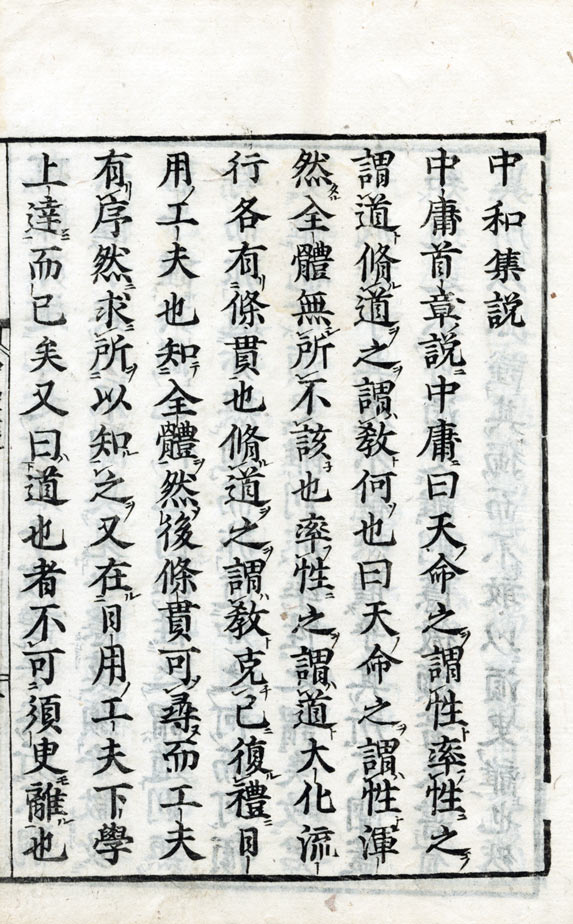 中和集説
中庸首章説中庸曰天命之謂性率性之
謂道脩道之謂教何也曰天命之謂性渾
然全體無所不該也率性之謂道大化流
行各有條貫也脩道之謂教克己復禮日
用工夫也知全體然後條貫可尋而工夫
有序然求所以知之又在日用工夫下學
上達而已矣又曰道也者不可須臾離也